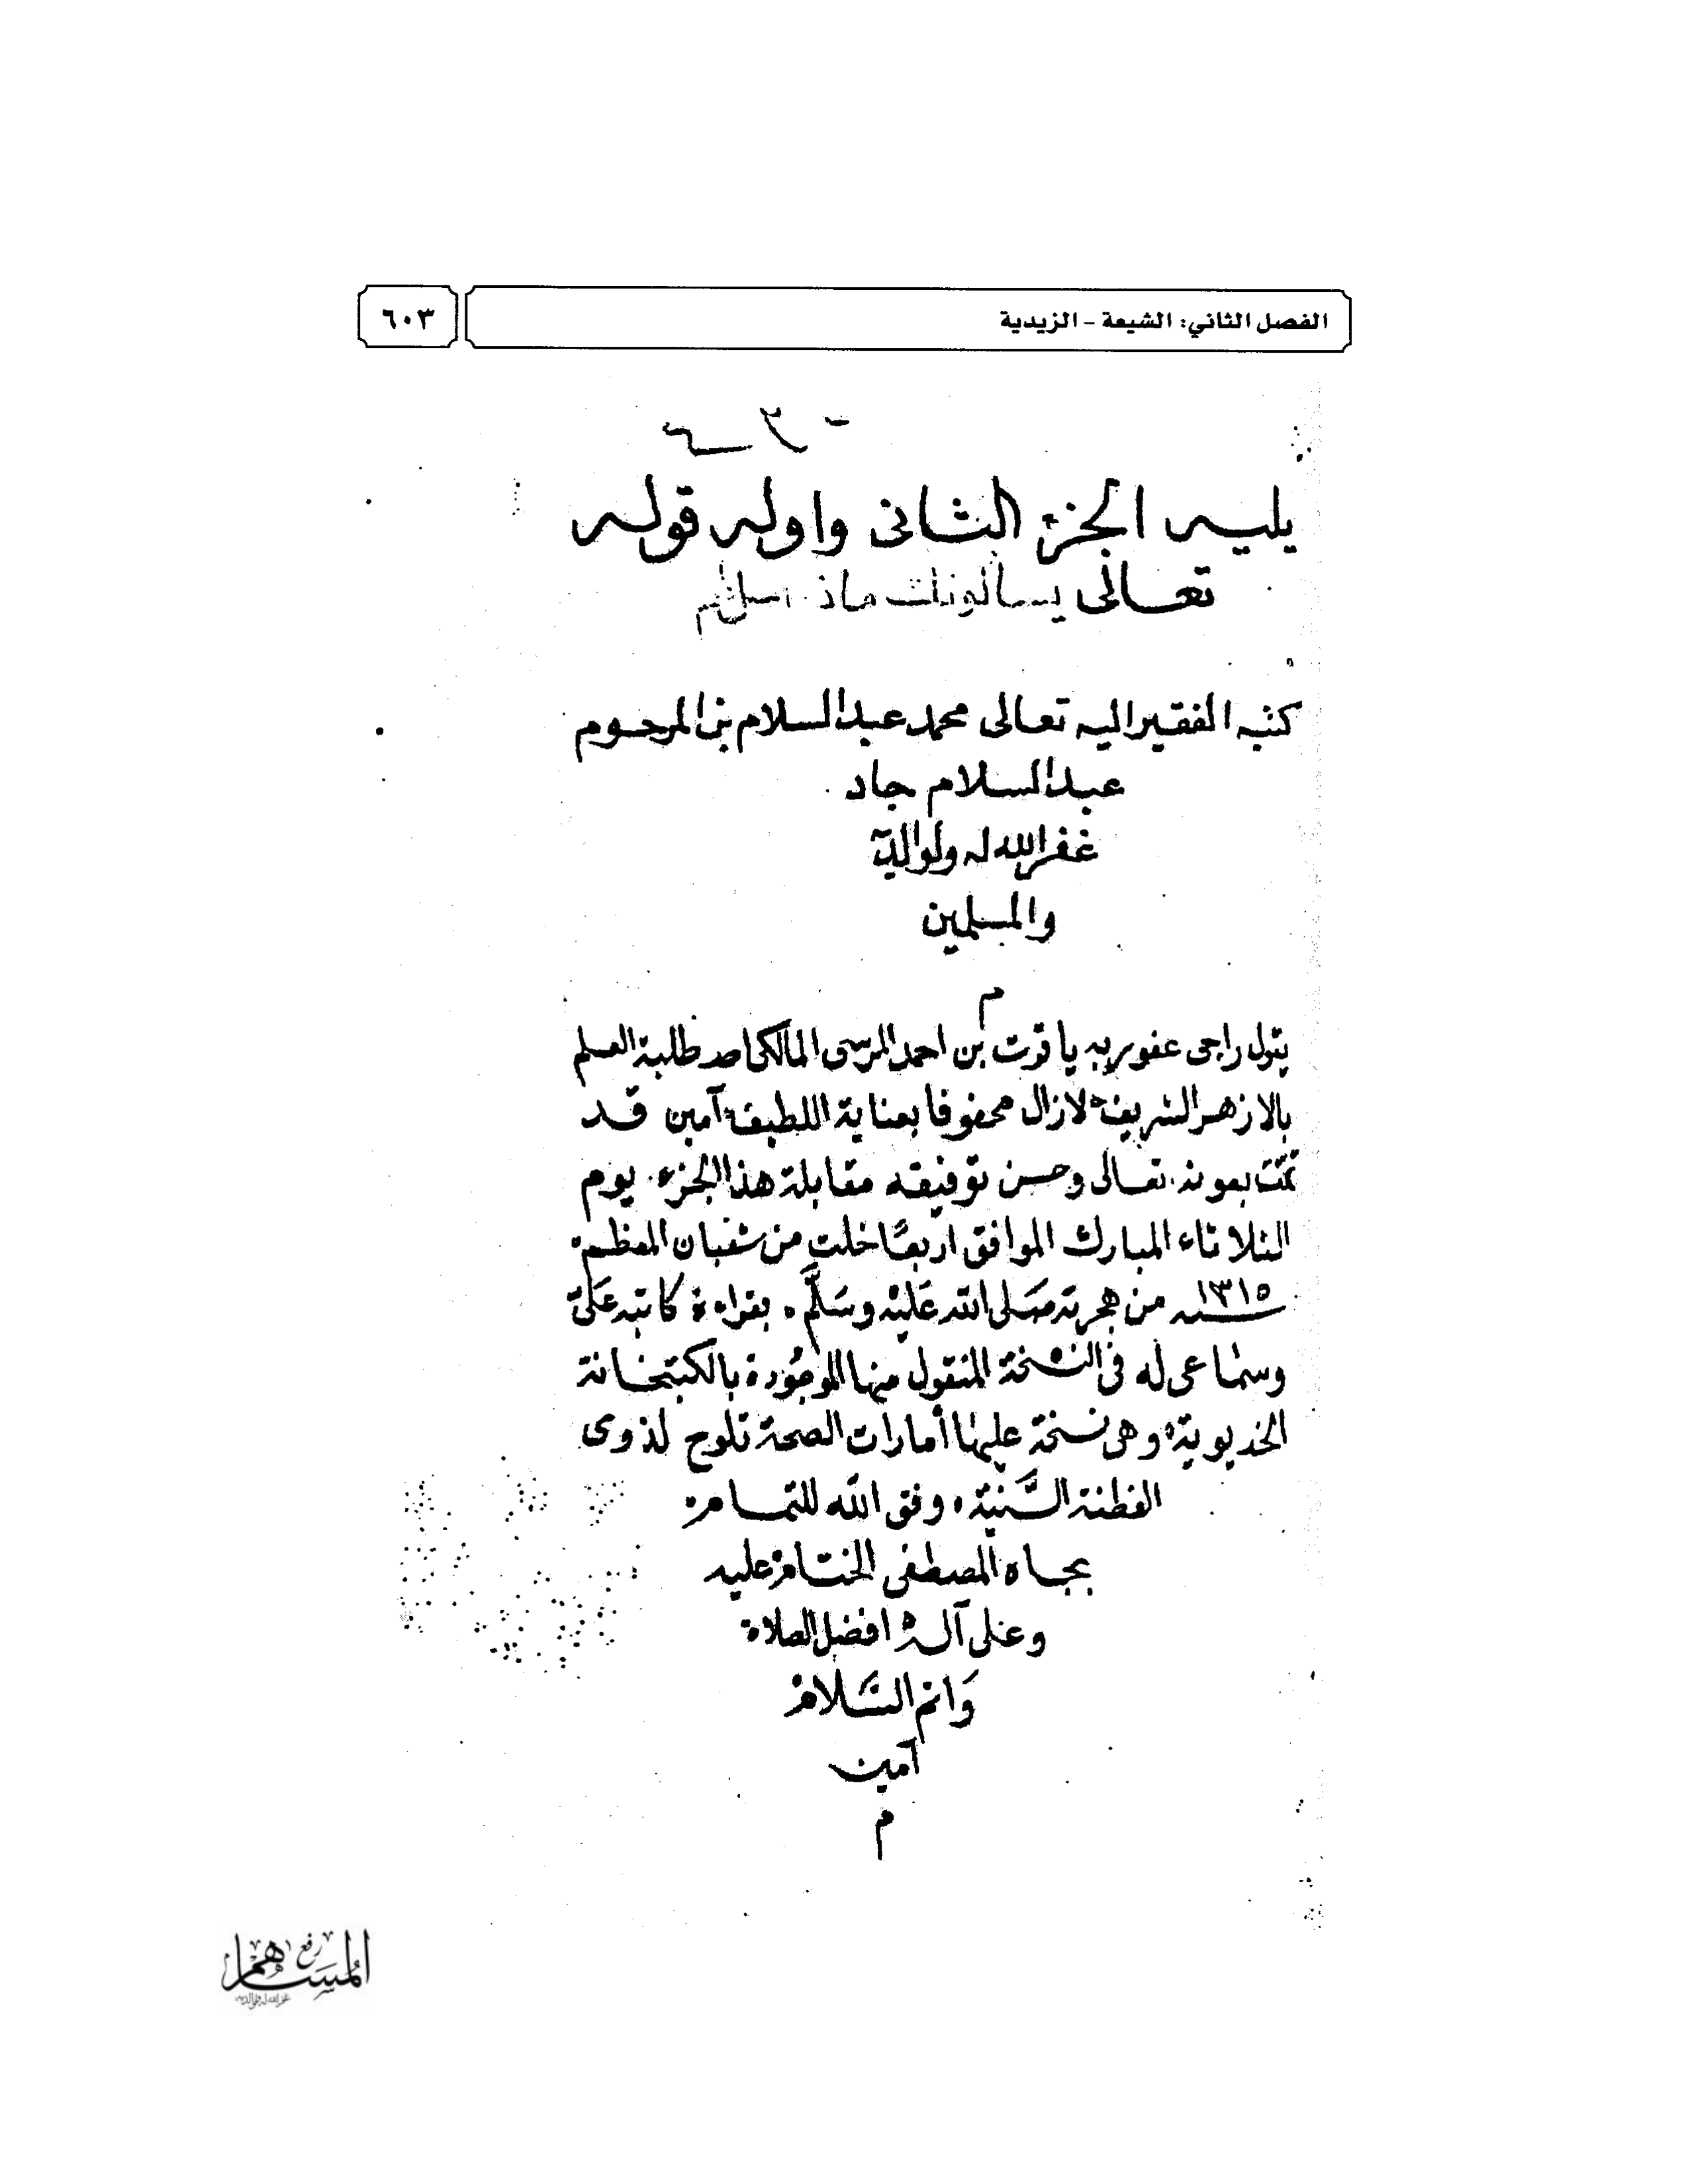 الفصل الثاني: الشيعة - الزيدية
٦٠٣
يليه الجزء الثانى واوله قوله
تعالى يسألونك ماذا احل لهم
كتبه الفقير اليه تعالى محمد عبد السلام بن المرحوم
عبد السلام جاد
غفر الله له ولوالديه
والمسلمين
م
يقول راجى عفو ربه ياقوت بن احمد المرسى المالكى احد طلبة العلم
بالازهر الشريف لازال محفوفا بعناية اللطيف آمين قد
تمّت بعونه تعالى وحسن توفيقه مقابلة هذا الجزء يوم
الثلاثاء المبارك الموافق اربعًا خلت من شعبان المعظم
سنه ١٣١٥ من هجرته صَلى الله عَليْه وسَلَّم بقراءة كاتبه عَلىّ
وسماعى له فى النسخة المنقول منها الموجُودة بالكتبخانة
الخديوية وهى نسخة عليها أمارات الصحة تلوح لذوى
الفطنة السَّنية وفق الله للتمام
بجاه المصطفى الختام عليه
وعلى آله افضل الصلاة
وَاتم السَّلام
آمين
م
رفع
المساهم
غفر الله له ولوالديه